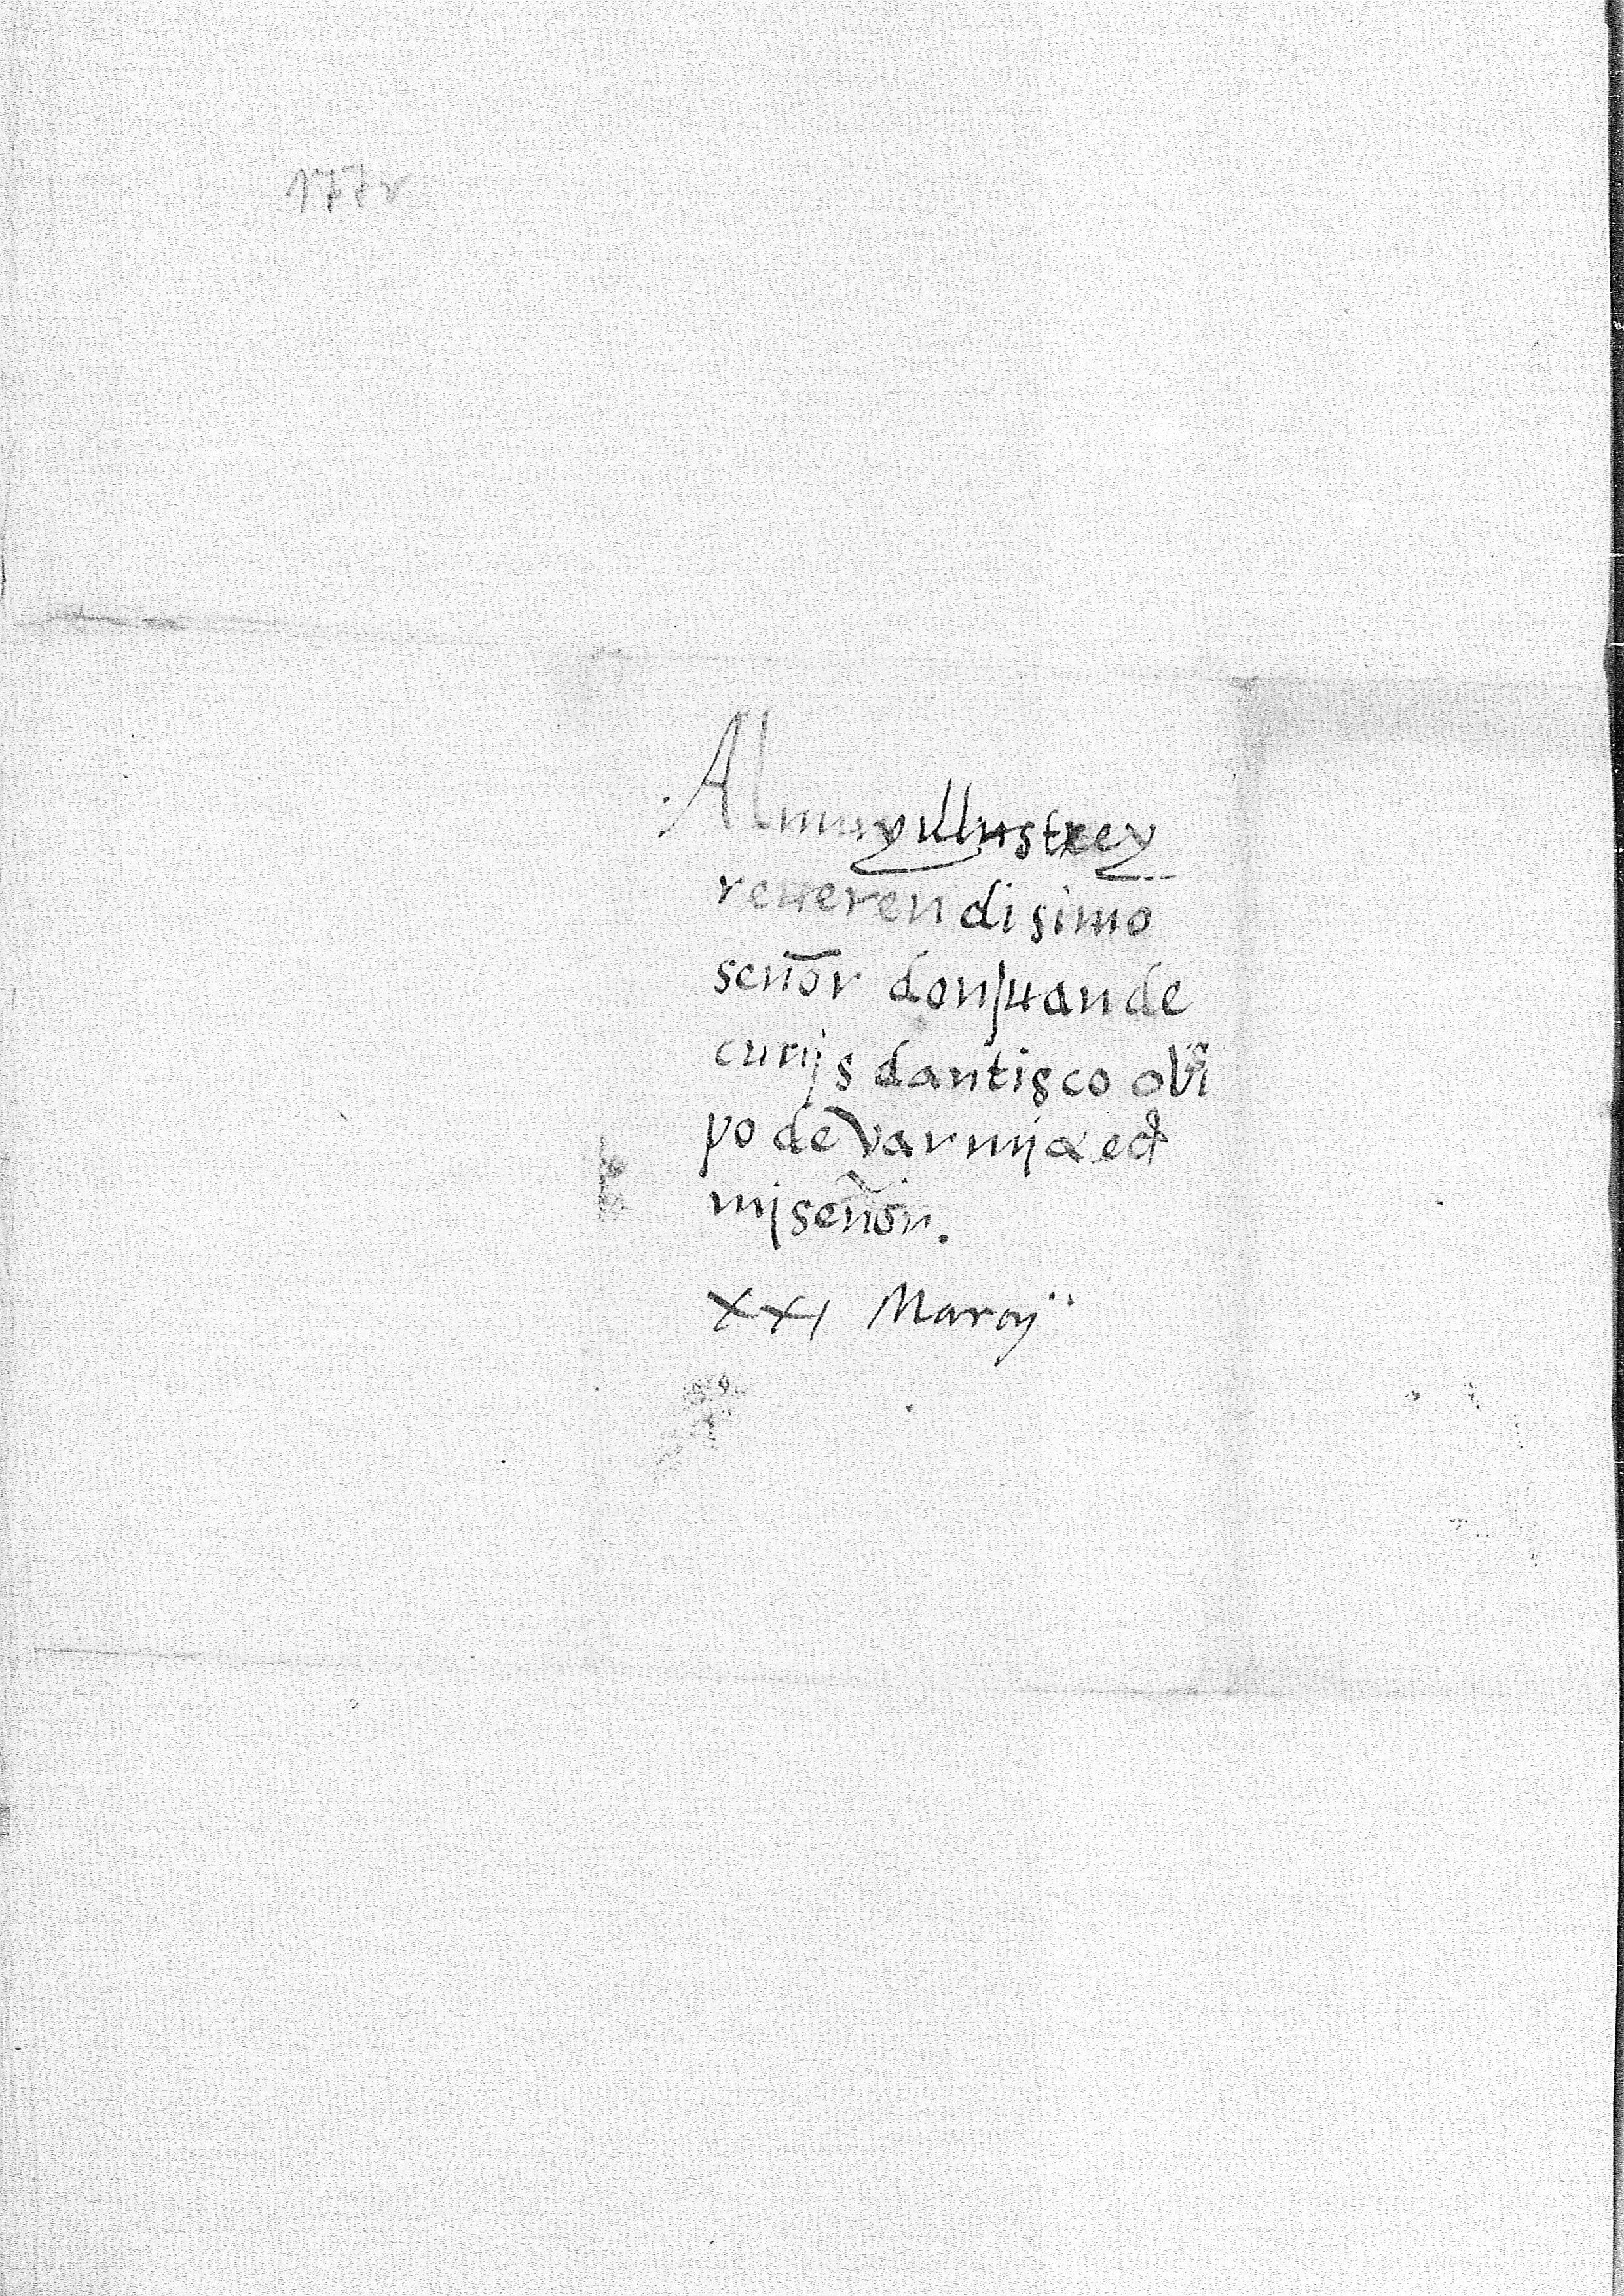 177v
Al muy illustre y
reuerendisimo
señor don juan de
curijs dantisco obis
po de varmija ect
mj señor.
XXI Marcij